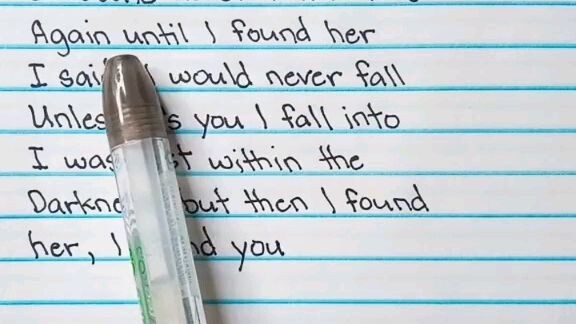 Again until I found her
I said I would never fall
Unless you I fall into
I was within the
but then I found
her, I you